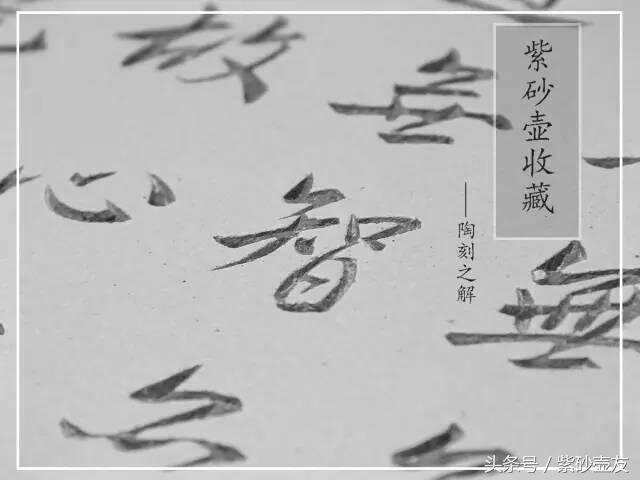 紫砂壶收藏
——陶刻之解
故
無
心
智
無
头条号 / 紫砂壶友